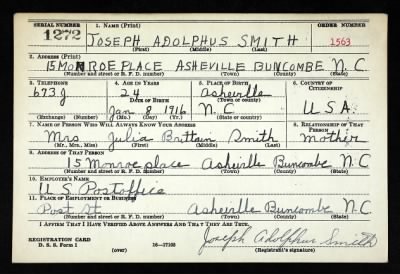 SERIAL NUMBER 1. NAME (Print) ORDER NUMBER
1272 JOSEPH ADOLPHUS SMITH 1563
(First) (Middle) (Last)
2. ADDRESS (Print)
15 MONROE PLACE ASHEVILLE BUNCOMBE N.C.
(Number and street or R. F. D. number) (Town) (County) (State)
3. TELEPHONE 4. AGE IN YEARS 5. PLACE OF BIRTH 6. COUNTRY OF CITIZENSHIP
673 J 24 Asheville
DATE OF BIRTH (Town or county)
Jan 8 1916 N.C. U.S.A.
(Exchange) (Number) (Mo.) (Day) (Yr.) (State or country)
7. NAME OF PERSON WHO WILL ALWAYS KNOW YOUR ADDRESS 8. RELATIONSHIP OF THAT PERSON
Mrs. Julia Brittain Smith Mother
(Mr., Mrs., Miss) (First) (Middle) (Last)
9. ADDRESS OF THAT PERSON
15 Monroe place Asheville Buncombe N.C.
(Number and street or R. F. D. number) (Town) (County) (State)
10. EMPLOYER'S NAME
U S Postoffice
11. PLACE OF EMPLOYMENT OR BUSINESS
Post St Asheville Buncombe N.C.
(Number and street or R. F. D. number) (Town) (County) (State)
I AFFIRM THAT I HAVE VERIFIED ABOVE ANSWERS AND THAT THEY ARE TRUE.
REGISTRATION CARD
D. S. S. Form 1 (over) 16—17105 Joseph Adolphus Smith
(Registrant's signature)